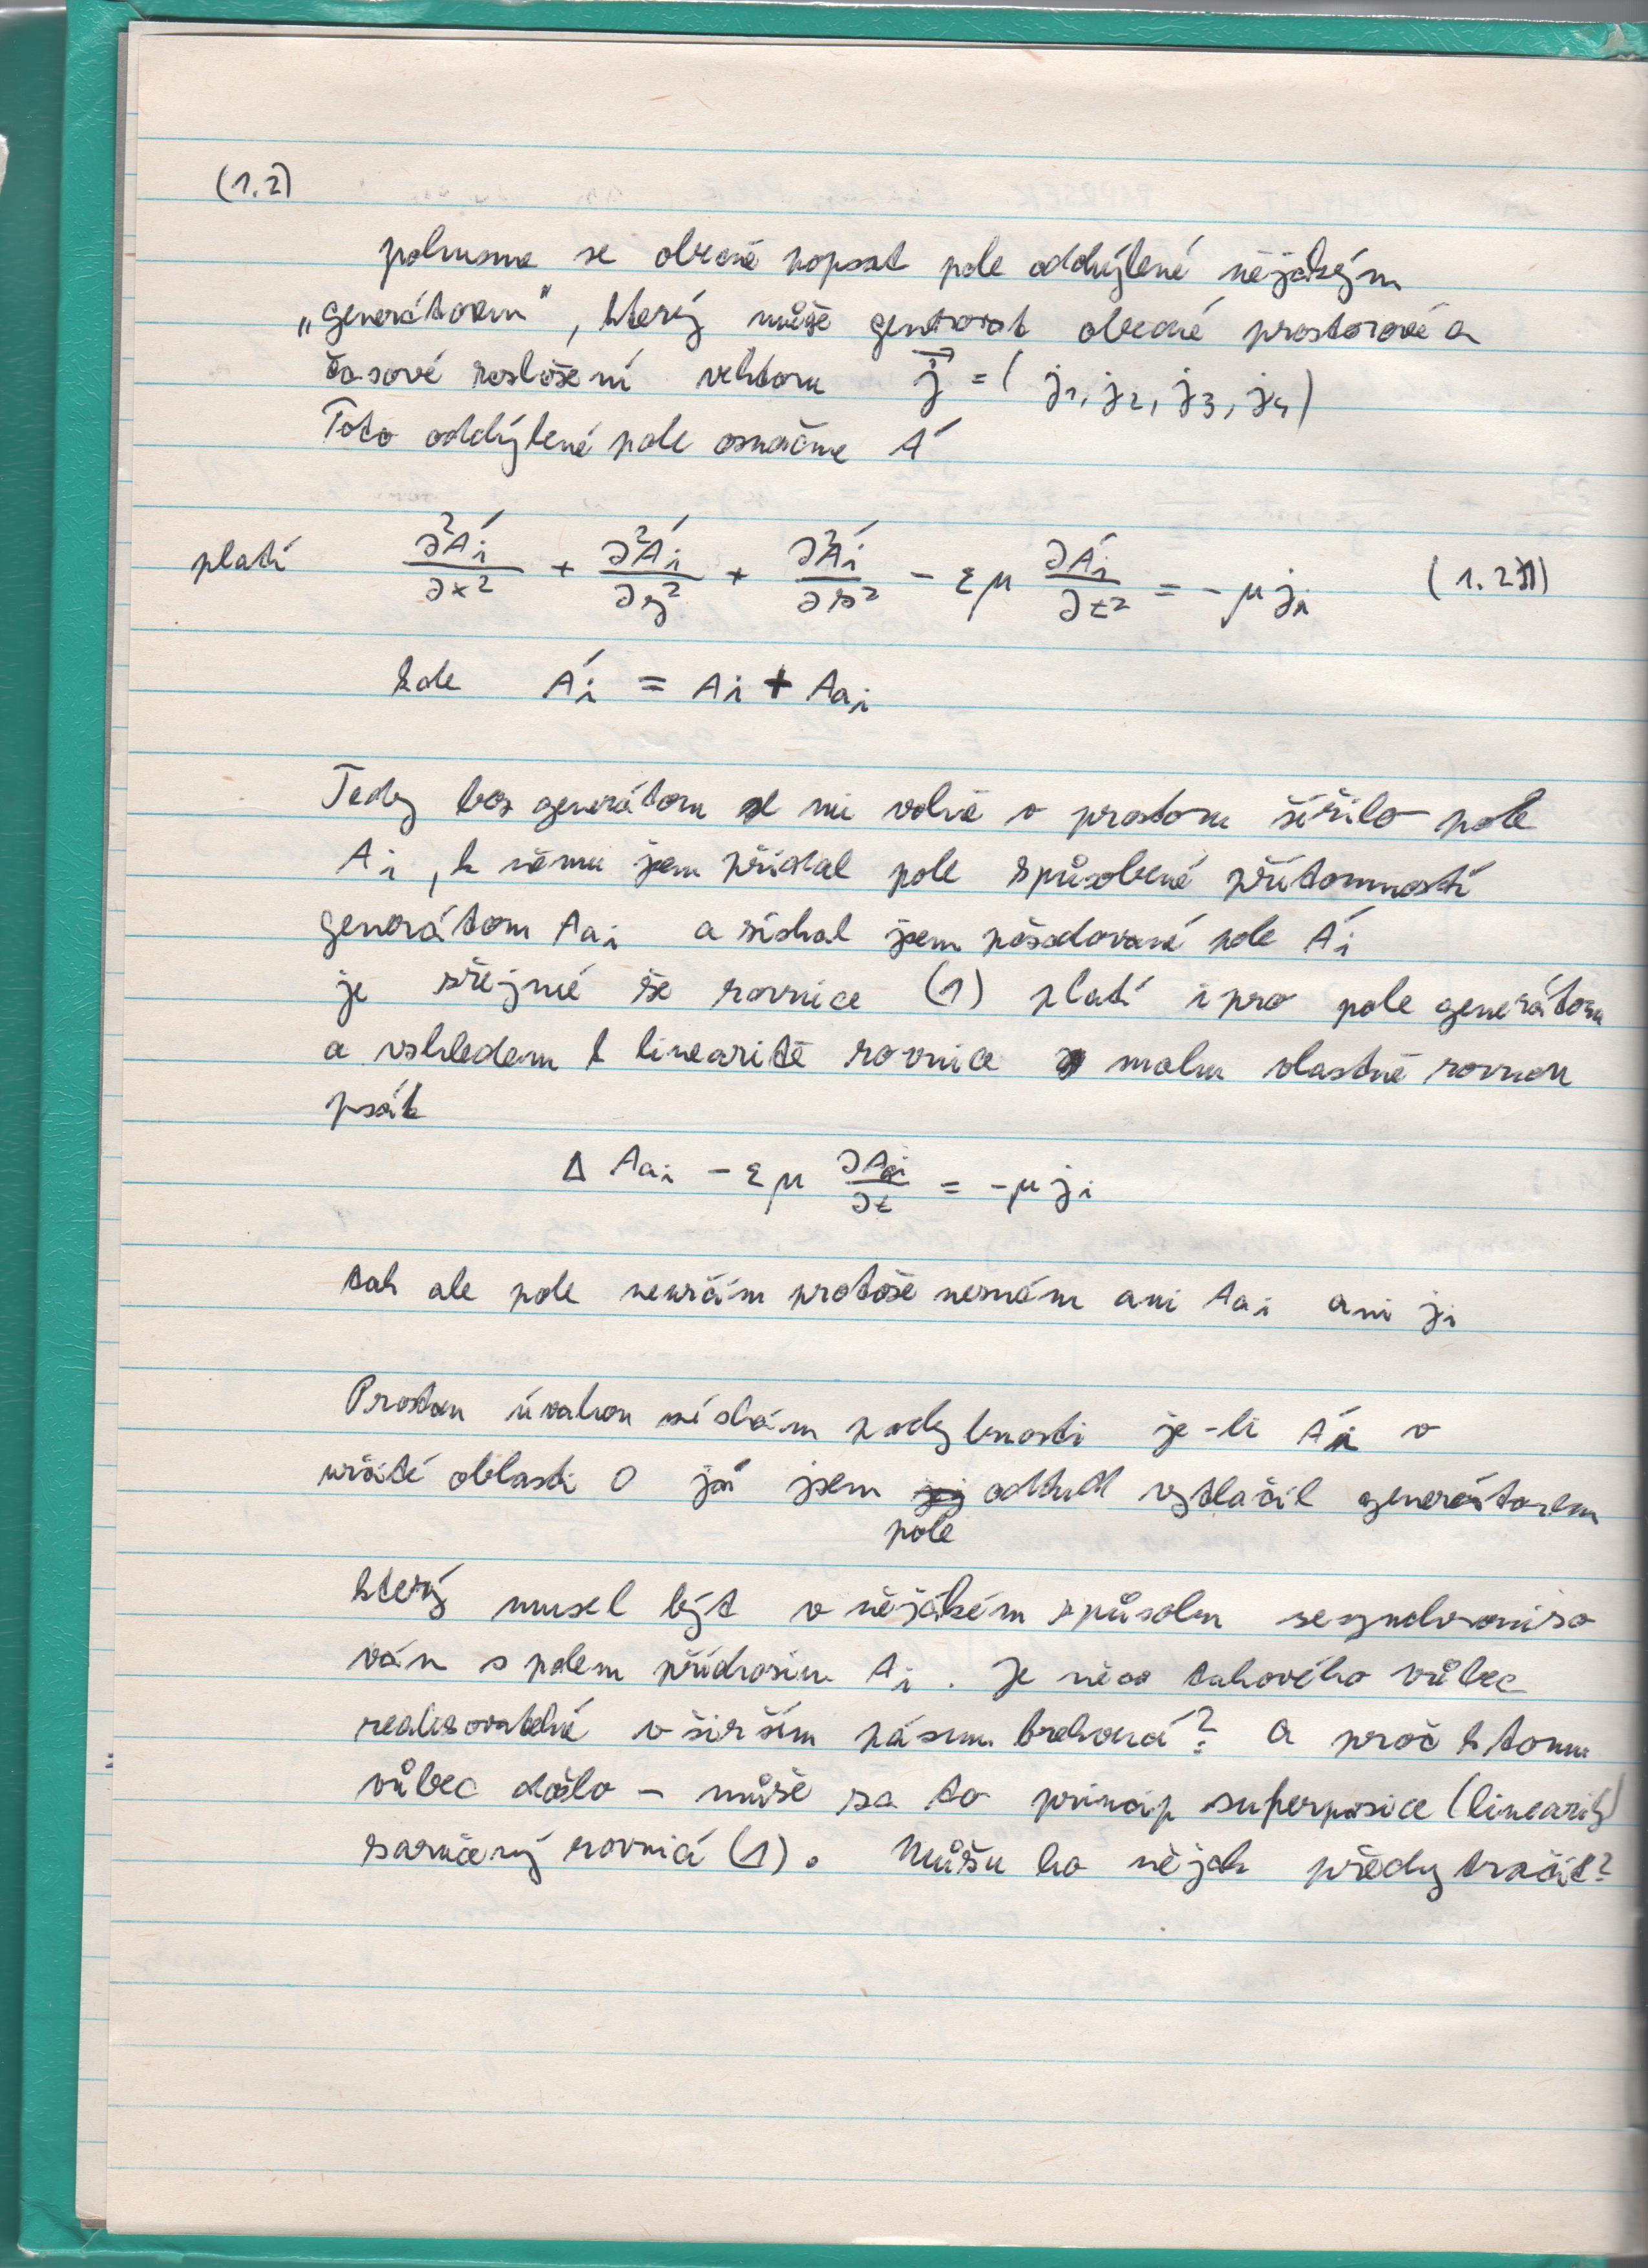 (1.2)
pokusme se obecně popsat pole oddýlené nějakým
„generátorem“, který může generovat obecné prostorové a
časové rozložení vektoru j⃗ = (j₁, j₂, j₃, j₄)
Toto oddýlené pole označme A′
platí ∂²A′ᵢ/∂x² + ∂²A′ᵢ/∂y² + ∂²A′ᵢ/∂z² − εμ ∂A′ᵢ/∂t² = −μjᵢ (1.21)
kde A′ᵢ = Aᵢ + Aaᵢ
Tedy bez generátoru se mi volně v prostoru šířilo pole
Aᵢ, k němu jsem přidal pole způsobené přítomností
generátoru Aaᵢ a získal jsem požadované pole A′ᵢ
je zřejmé že rovnice (1) platí i pro pole generátoru
a vzhledem k linearitě rovnice mohu vlastně rovnou
psát
Δ Aaᵢ − εμ ∂Aaᵢ/∂t = −μjᵢ
tak ale pole neurčím protože neznám ani Aaᵢ ani jᵢ
Prostou úvahou získám podezření je-li A′ᵢ v
určité oblasti 0 já jsem odtud vytlačil generátorem
pole
který musel být v nějakém způsobu sesynchroniso
ván s polem příchozím Aᵢ. Je něco takového vůbec
realizovatelné v širším pásmu frekvencí? A proč k tomu
vůbec došlo – může za to princip superposice (linearity)
zaručený rovnicí (1). Můžu ho nějak předytračit?